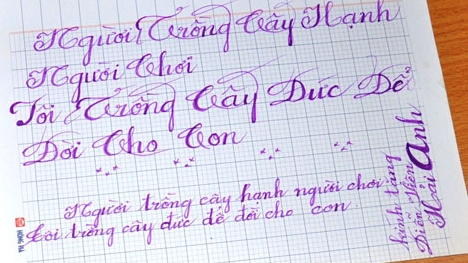 Người Trồng Cây Hạnh
Người Chơi
Tôi Trồng Cây Đức Để
Đời Cho Con
Người trồng cây hạnh người chơi
Tôi trồng cây đức để đời cho con
kính tặng
Diễn Viên
Hải Anh
HỒNG HÀ